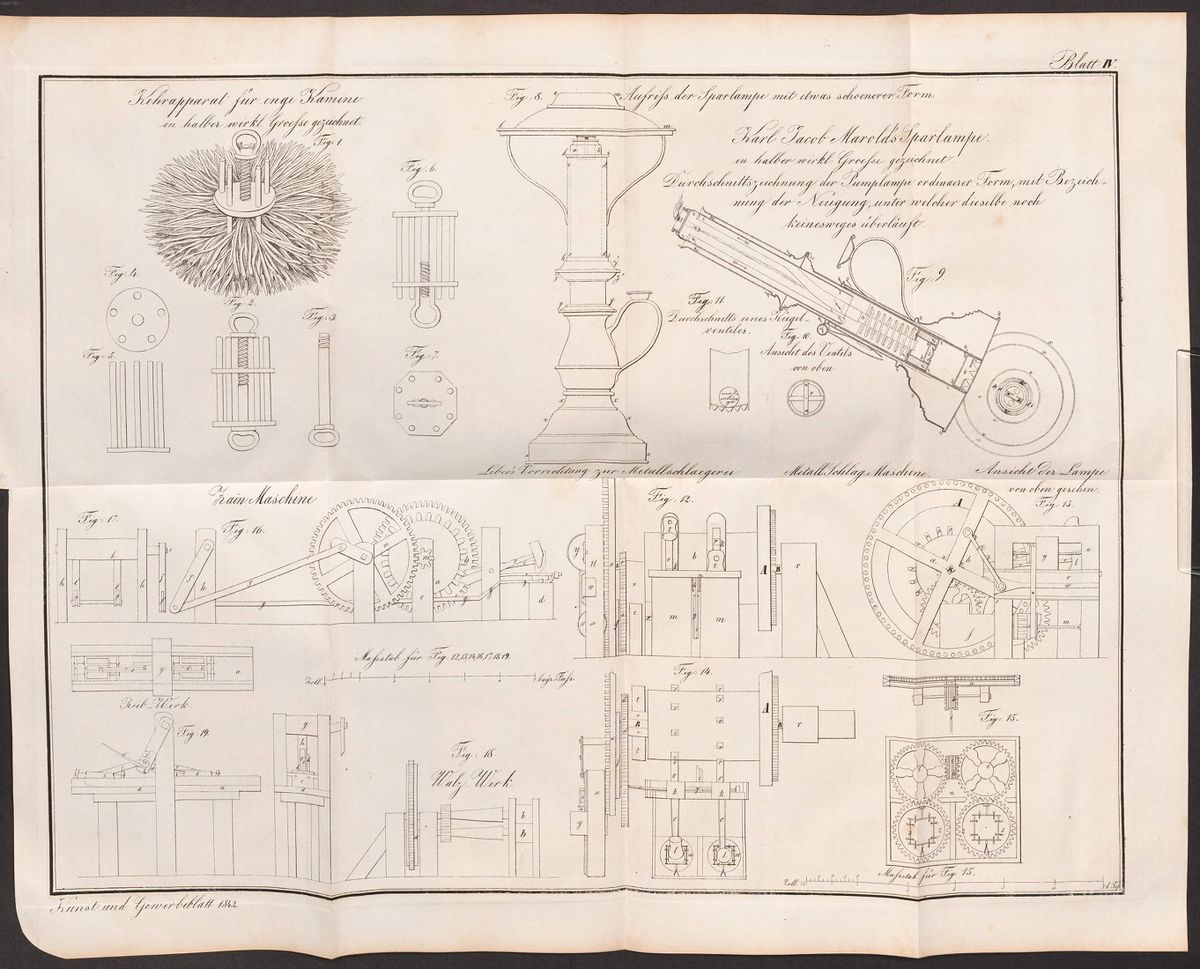 Blatt IV.
Kehrapparat für enge Kamine
in halber wirkl. Groesse gezeichnet.
Fig. 1
Fig. 6.
Fig. 4.
Fig. 2.
Fig. 3.
Fig. 5.
Fig. 7.
Fig. 8. Aufriss der Sparlampe mit etwas schoenerer Form.
Karl Jacob Marold's Sparlampe.
in halber wirkl. Groesse gezeichnet.
Durchschnittszeichnung der Pumplampe ordinaerer Form, mit Bezeich-
nung der Neigung, unter welcher dieselbe noch
keinesweges überläuft.
Fig. 9.
Fig. 11.
Durchschnitts eines Kugel-
ventiles.
Fig. 10.
Ansicht des Ventils
von oben
Leber's Vorrichtung zur Metallschlaegerei
Metall Schlag Maschine.
Ansicht der Lampe
von oben gesehen.
Zain Maschine
Fig. 17.
Fig. 16.
Fig. 12.
Fig. 13.
Massstab für Fig. 12,13,14,16,17,18,19.
Zoll.
bayr. Fuss.
Reib-Werk
Fig. 19.
Fig. 14.
Fig. 15.
Fig. 18
Walz Werk
Massstab für Fig. 15.
Zoll.
Kunst und Gewerbeblatt 1842.